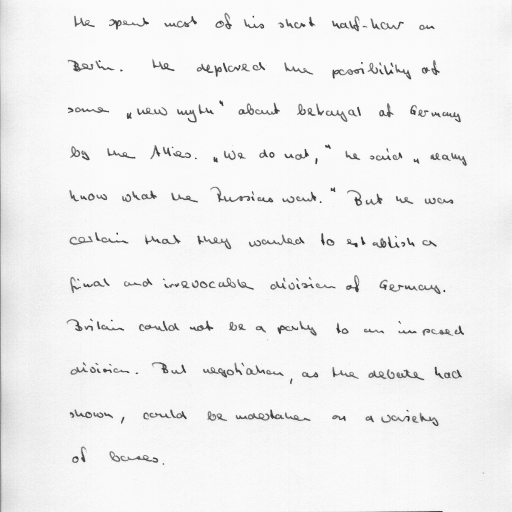 He spent most of his short half-hour on
Berlin. He deplored the possibility of
some "new myth" about betrayal of Germany
by the Allies. "We do not," he said "really
know what the Russians want." But he was
certain that they wanted to establish a
final and irrevocable division of Germany.
Britain could not be a party to an imposed
division. But negotiation, as the debate had
shown, could be undertaken on a variety
of bases.